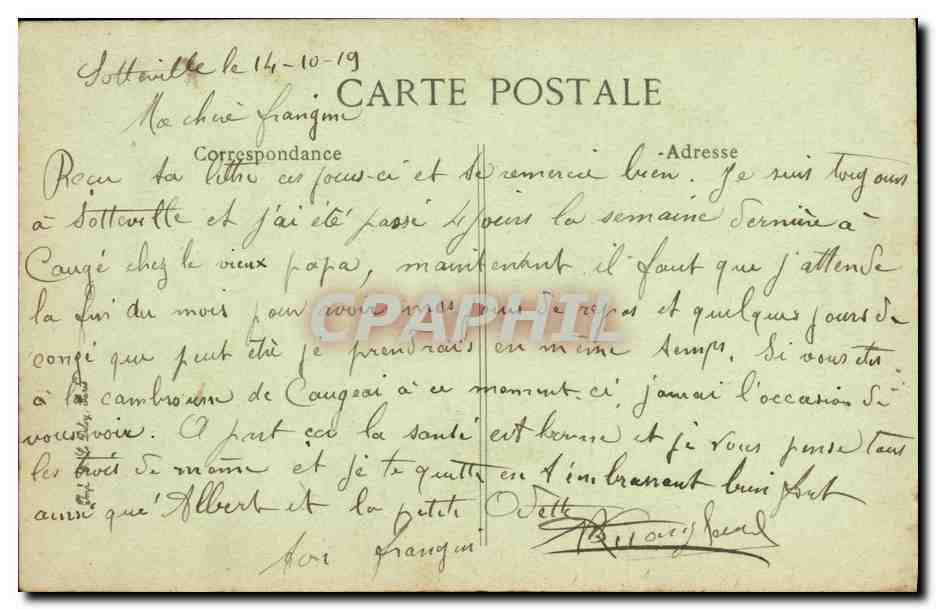 Sotteville le 14-10-19
CARTE POSTALE
Ma chère frangine
Correspondance
-Adresse
Reçu ta lettre ces jours-ci et te remercie bien. Je suis toujours
à Sotteville et j'ai été passé 4 jours la semaine dernière à
Caugé chez le vieux papa, maintenant il faut que j'attende
la fin du mois pour avoir mes jours de repos et quelques jours de
congé que peut être je prendrais en même temps. Si vous êtes
à la cambrousse de Caugeai à ce moment-ci, j'aurai l'occasion de
vous voir. A part ça la santé est bonne et je vous pense tous
les trois de même et je te quitte en t'embrassant bien fort
ainsi que Albert et la petite Odette
ton frangin
CPAPHIL